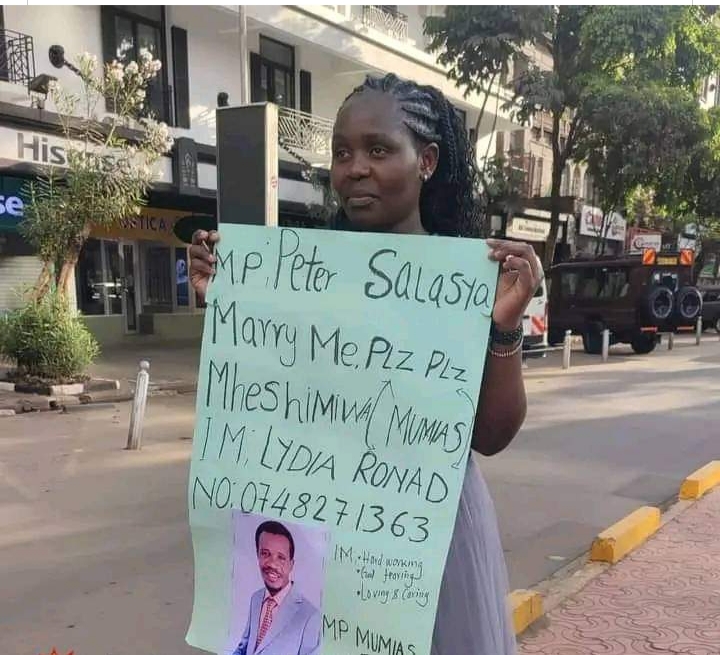 His
se
TICA
M.P; Peter Salasya
Marry Me, PLZ PLZ
MHesHiMiWA (MUMIAS)
I M; LYDIA RONAD
NO: 0748271363
IM •Hard working
•God fearing
•Loving & Caring
MP MUMIAS